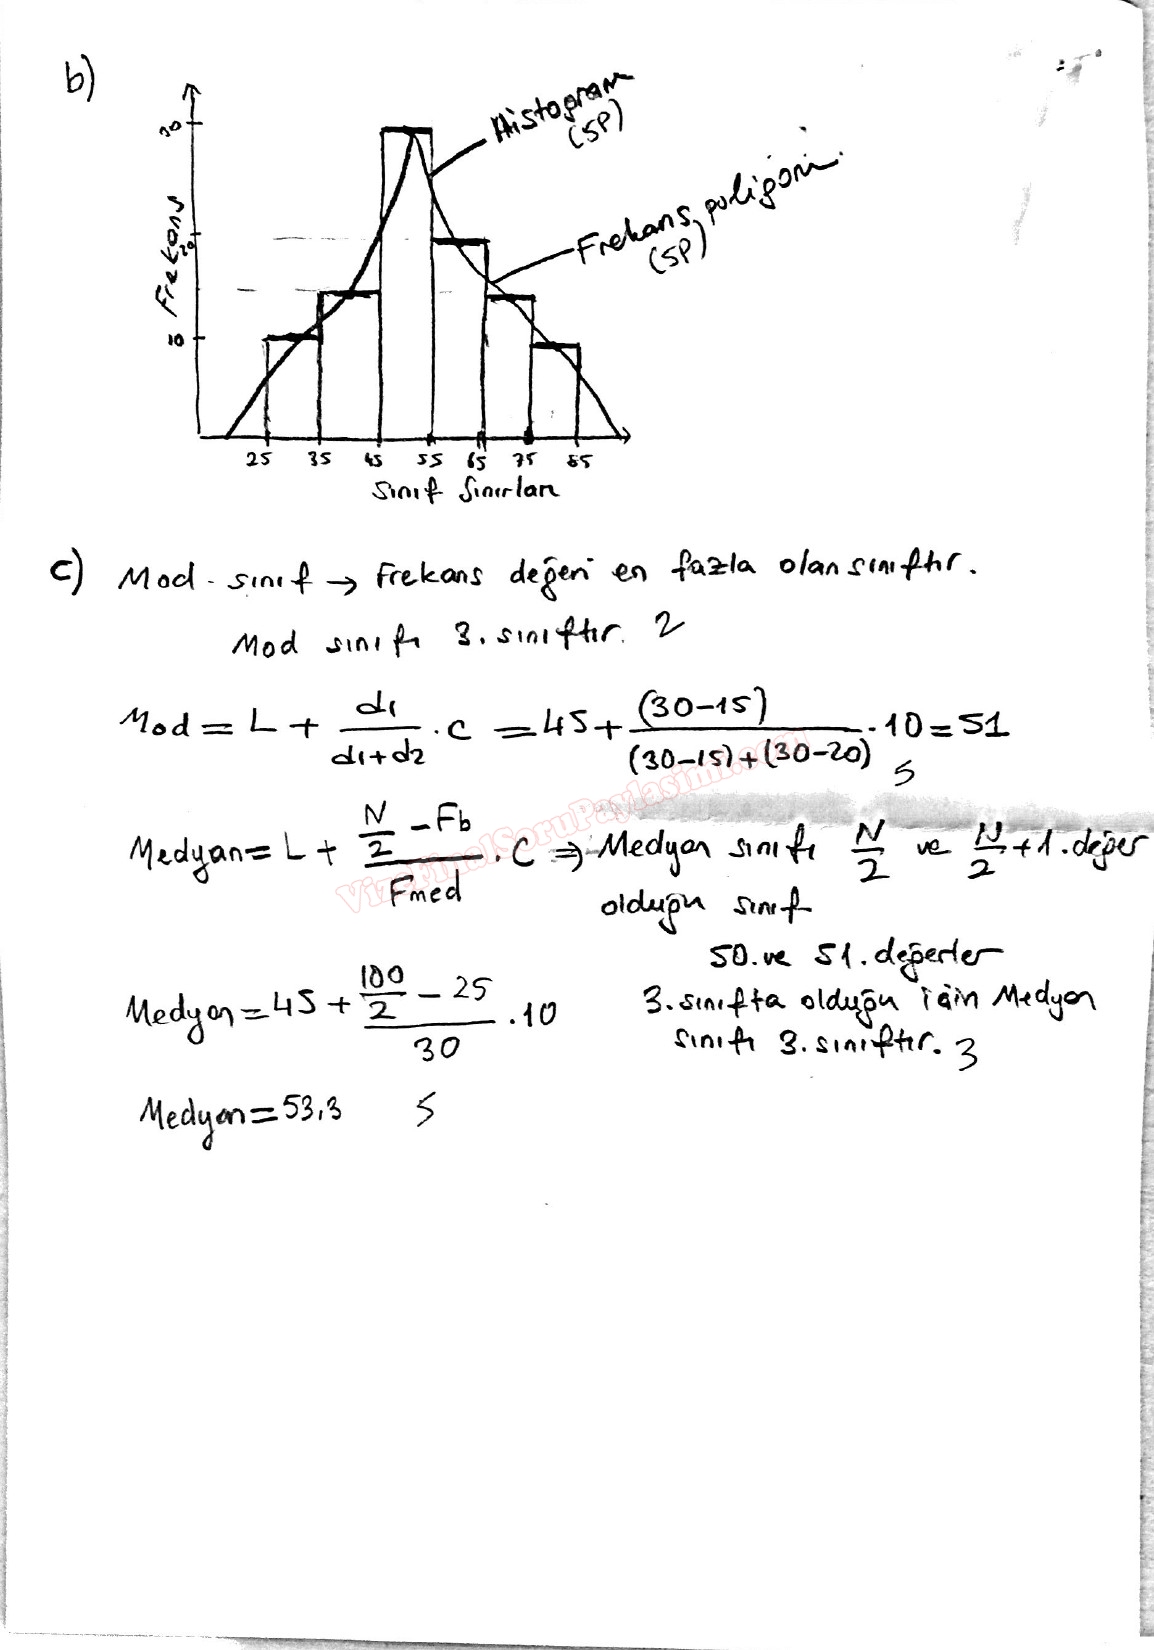 b)
Histogram
(5P)
Frekans poligonu
(5P)
Frekans
30
20
10
25 35 45 55 65 75 85
Sınıf Sınırları
c) Mod-sınıf → Frekans değeri en fazla olan sınıftır.
Mod sınıfı 3. sınıftır. 2
Mod = L + d1/(d1+d2) . C = 45 + (30-15)/((30-15)+(30-20)) . 10 = 51
5
Medyan = L + (N/2 - Fb)/Fmed . C ⇒ Medyan sınıfı N/2 ve N/2 + 1. değer
olduğu sınıf
50. ve 51. değerler
Medyan = 45 + (100/2 - 25)/30 . 10
3. sınıfta olduğu için Medyan
sınıfı 3. sınıftır. 3
Medyan = 53,3 5
VizeFinalSoruPaylasimi.com